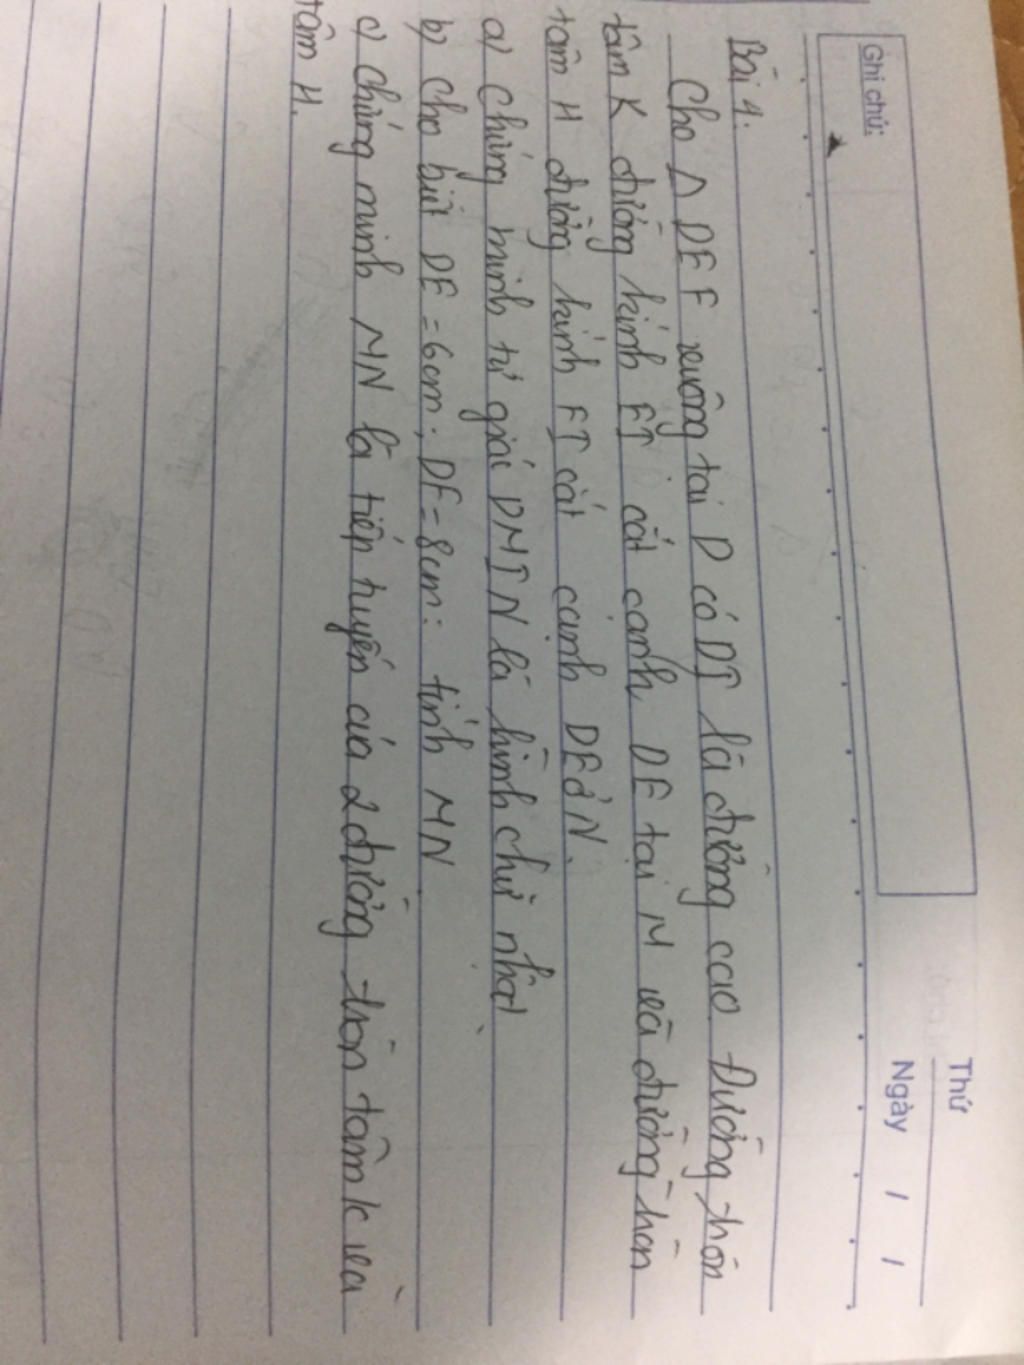 Thứ
Ngày / /
Ghi chú:
Bài 4.
Cho Δ DEF vuông tại D có DI là đường cao. Đường tròn
tâm K đường kính EI cắt cạnh DE tại M và đường tròn
tâm H đường kính FI cắt cạnh DF ở N.
a) Chứng minh tứ giác DMIN là hình chữ nhật
b) Cho biết DE = 6cm; DF = 8cm: tính MN.
c) Chứng minh MN là tiếp tuyến của 2 đường tròn tâm K và
tâm H.